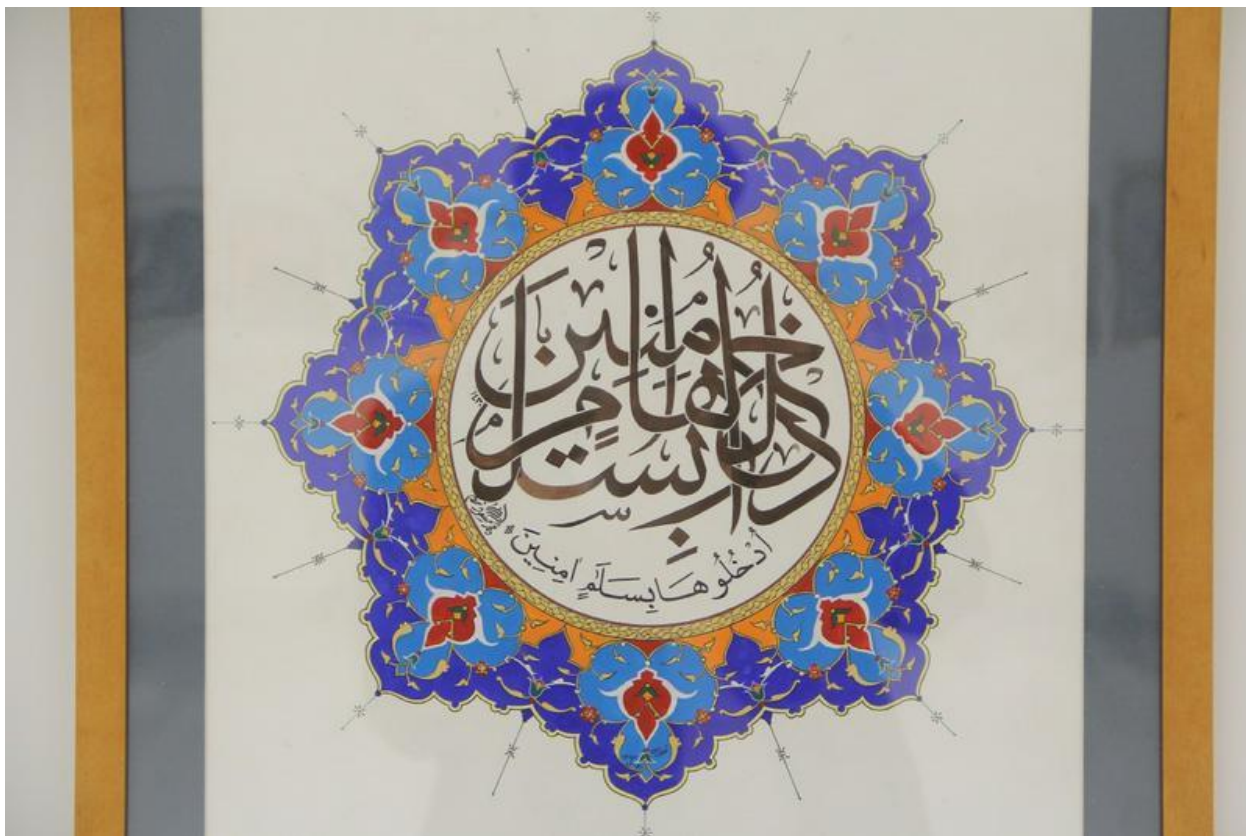 ادخلوها بسلام امنين
أُدْخُلُوهَا بِسَلَامٍ اٰمِنِينَ